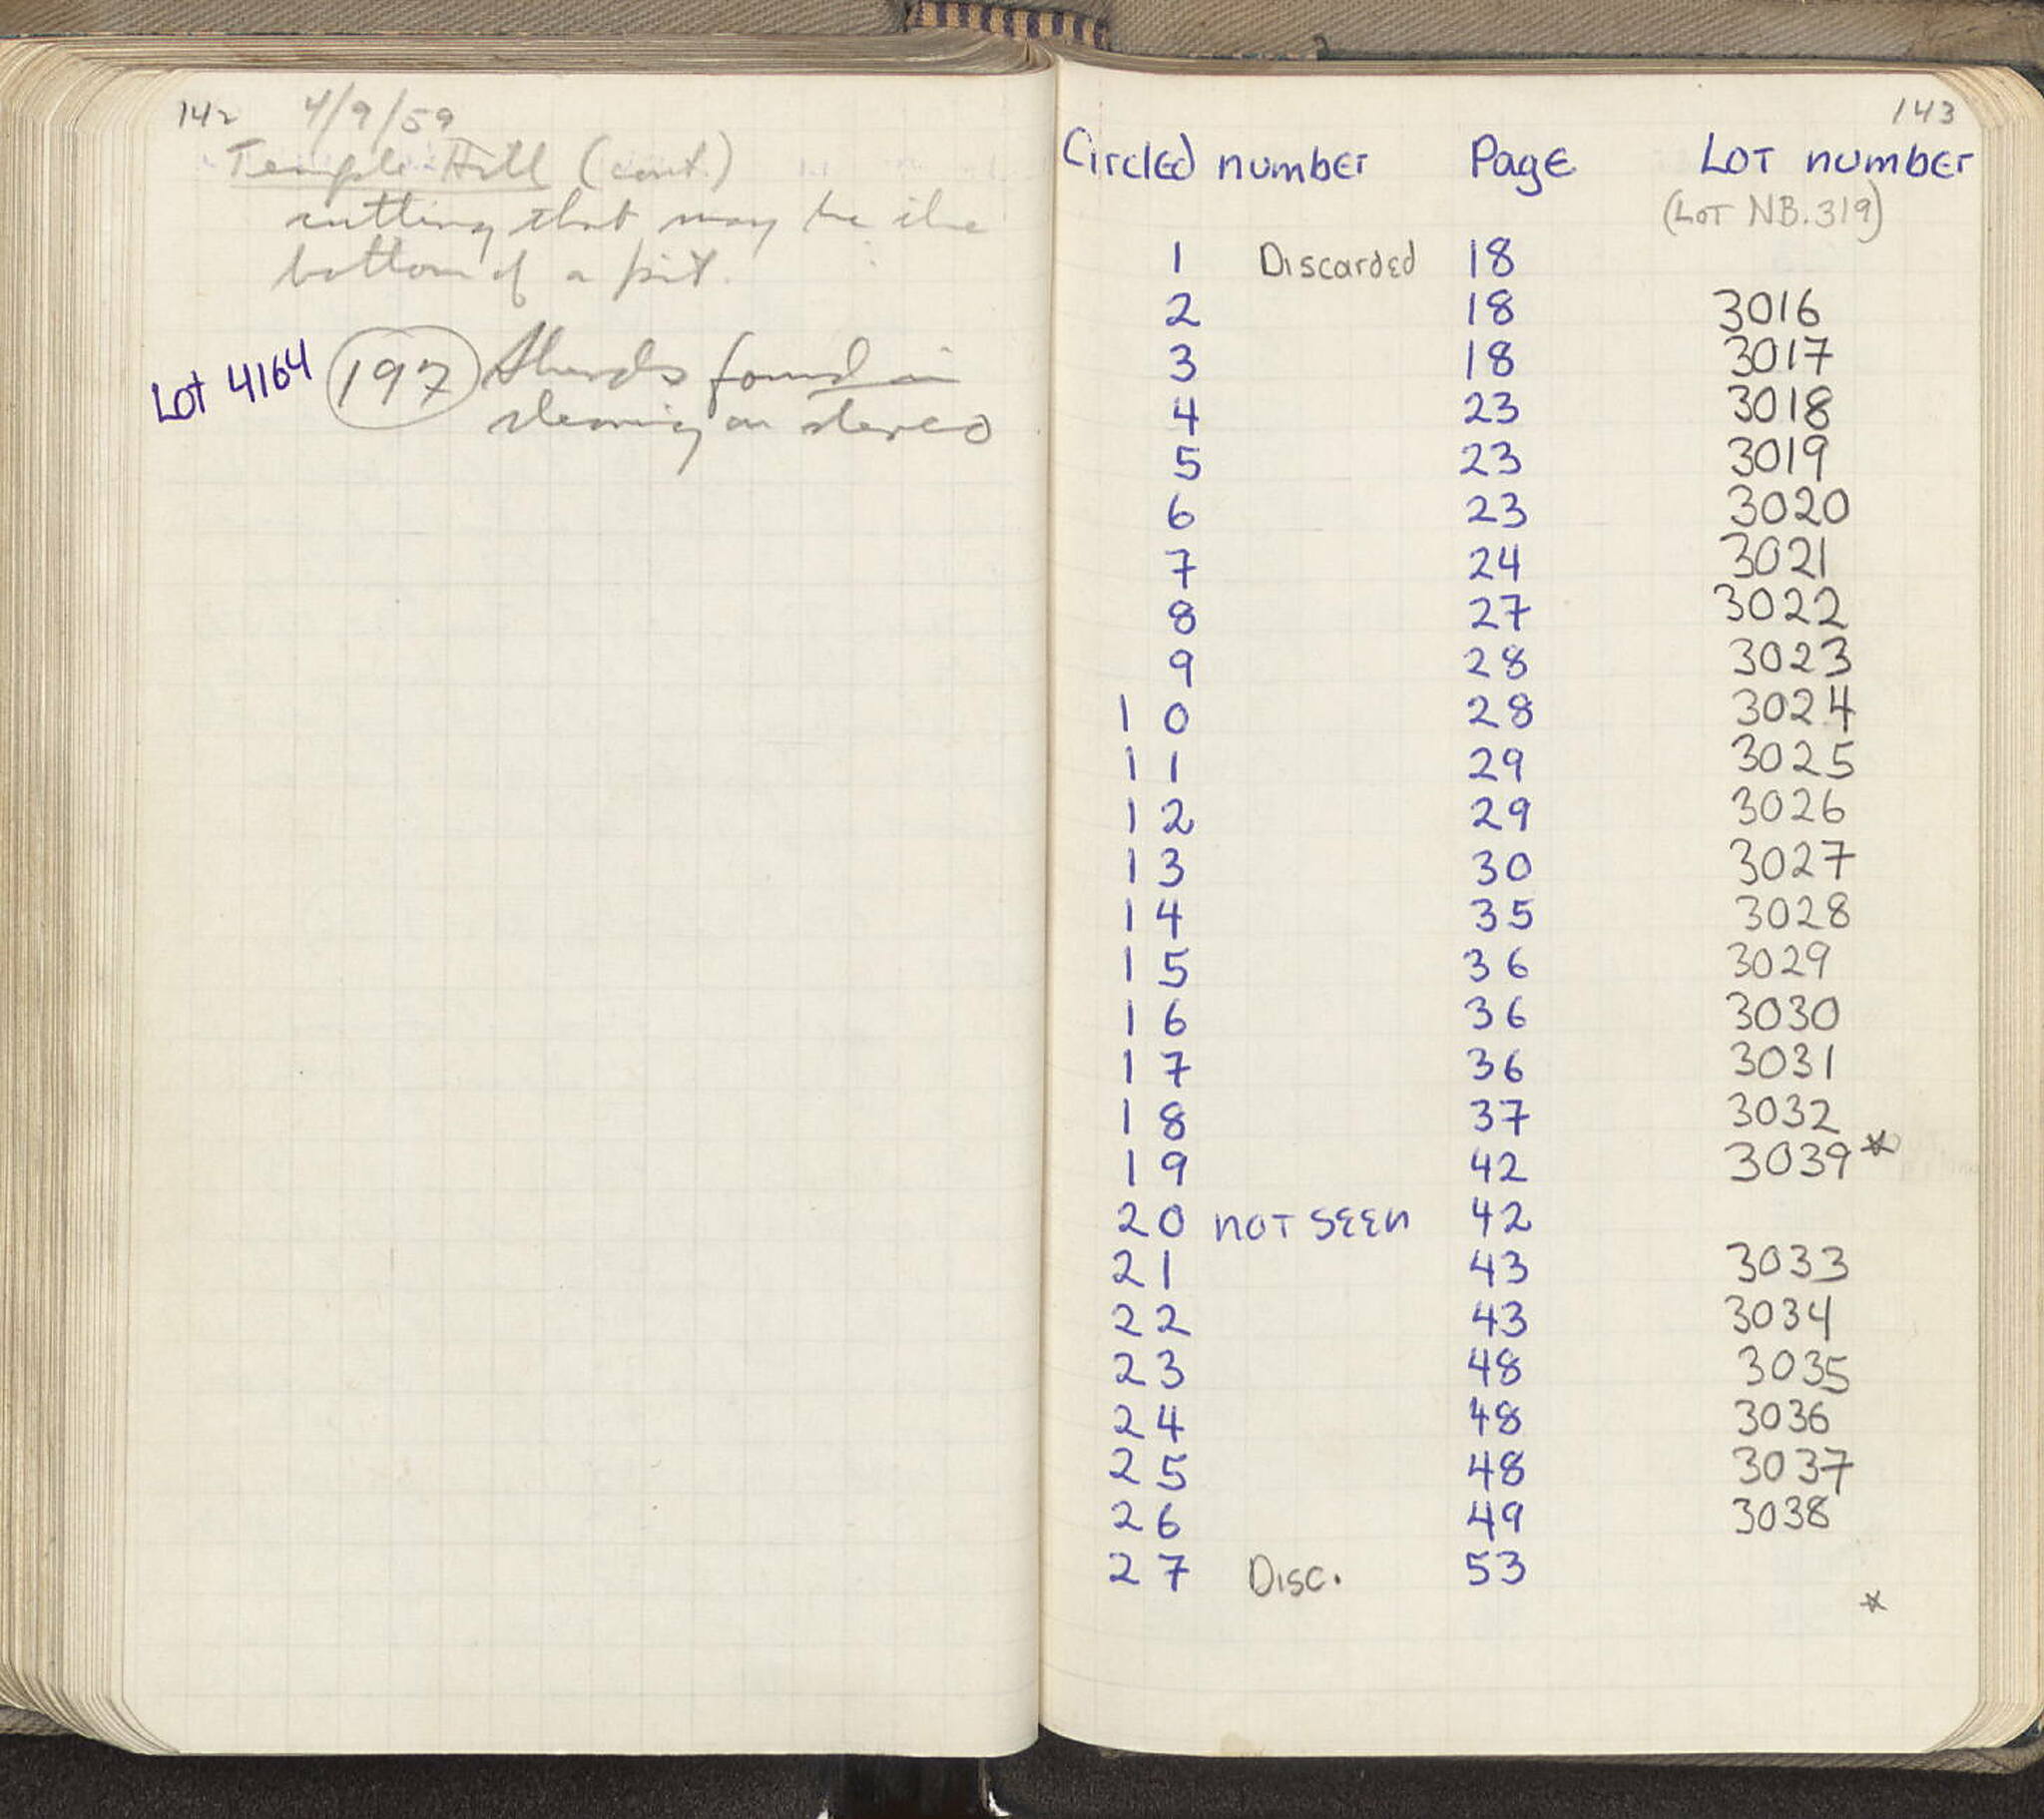 142 4/9/59
Temple Hill (cont.)
cutting that may be the
bottom of a pit.
Lot 4164 197 Sherds found in
cleaning on stereo
143
Circled number Page Lot number
(Lot NB.319)
1 Discarded 18
2 18 3016
3 18 3017
4 23 3018
5 23 3019
6 23 3020
7 24 3021
8 27 3022
9 28 3023
10 28 3024
11 29 3025
12 29 3026
13 30 3027
14 35 3028
15 36 3029
16 36 3030
17 36 3031
18 37 3032
19 42 3039*
20 not seen 42
21 43 3033
22 43 3034
23 48 3035
24 48 3036
25 48 3037
26 49 3038
27 Disc. 53
*